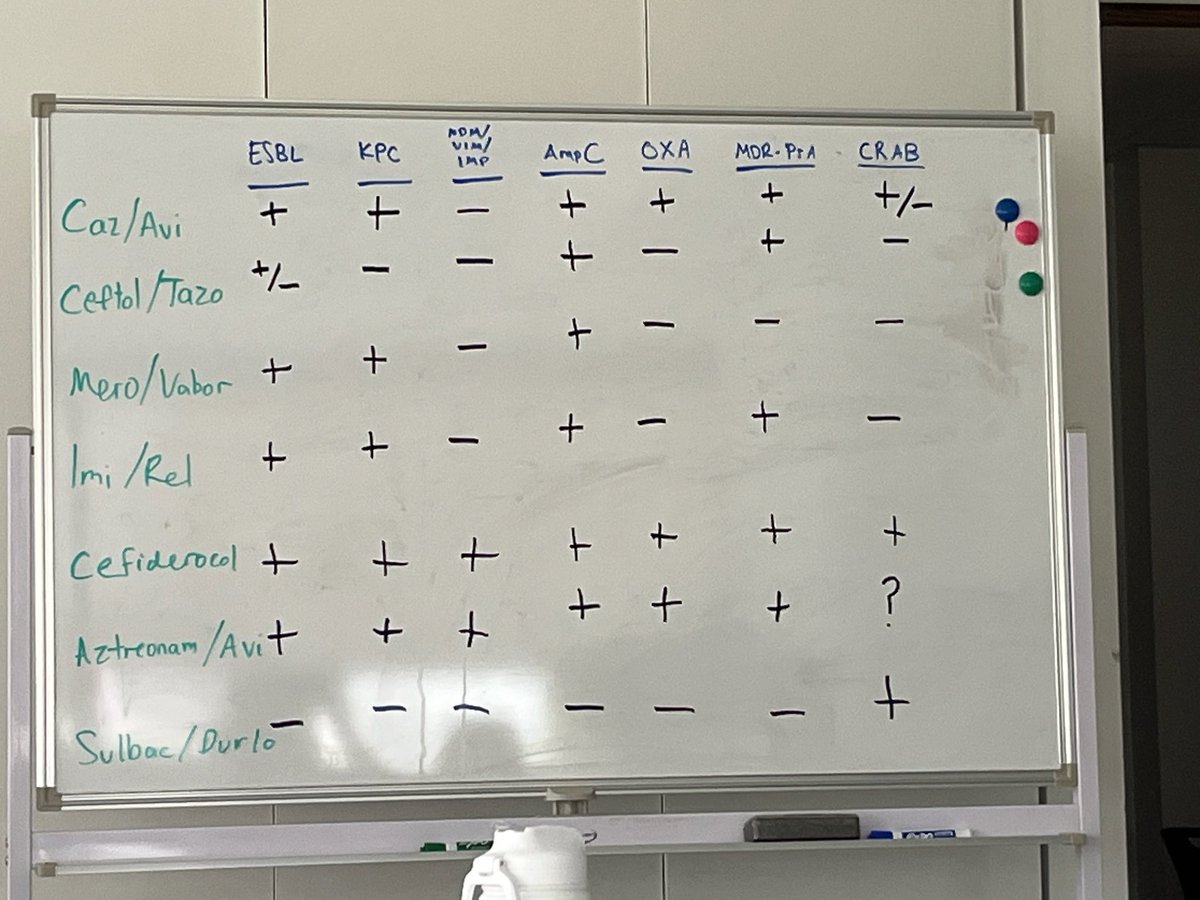 ESBL KPC NDM/VIM/IMP AmpC OXA MDR-PsA CRAB
Caz/Avi + + - + + + +/-
Ceftol/Tazo +/- - - + - + -
Mero/Vabor + + - + - - -
Imi/Rel + + - + - + -
Cefiderocol + + + + + + +
Aztreonam/Avi + + + + + + ?
Sulbac/Durlo - - - - - - +